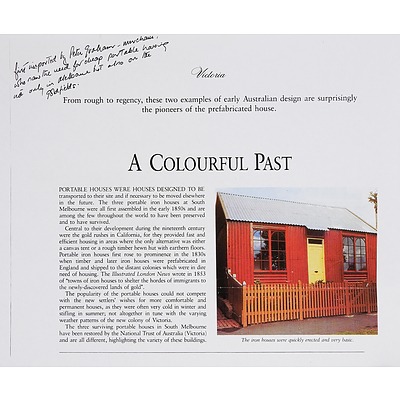 first imported by Peter Graham - merchant.
who saw the need for cheap portable housing
not only in Melbourne but also on the
goldfields.
Victoria
From rough to regency, these two examples of early Australian design are surprisingly
the pioneers of the prefabricated house.
A COLOURFUL PAST
PORTABLE HOUSES WERE HOUSES DESIGNED TO BE
transported to their site and if necessary to be moved elsewhere
in the future. The three portable iron houses at South
Melbourne were all first assembled in the early 1850s and are
among the few throughout the world to have been preserved
and to have survived.
Central to their development during the nineteenth century
were the gold rushes in California, for they provided fast and
efficient housing in areas where the only alternative was either
a canvas tent or a rough timber hewn hut with earthern floors.
Portable iron houses first rose to prominence in the 1830s
when timber and later iron houses were prefabricated in
England and shipped to the distant colonies which were in dire
need of housing. The Illustrated London News wrote in 1853
of "towns of iron houses to shelter the hordes of immigrants to
the newly-discovered lands of gold".
The popularity of the portable houses could not compete
with the new settlers' wishes for more comfortable and
permanent houses, as they were often very cold in winter and
stifling in summer; not altogether in tune with the varying
weather patterns of the new colony of Victoria.
The three surviving portable houses in South Melbourne
have been restored by the National Trust of Australia (Victoria)
and are all different, highlighting the variety of these buildings.
The iron houses were quickly erected and very basic.